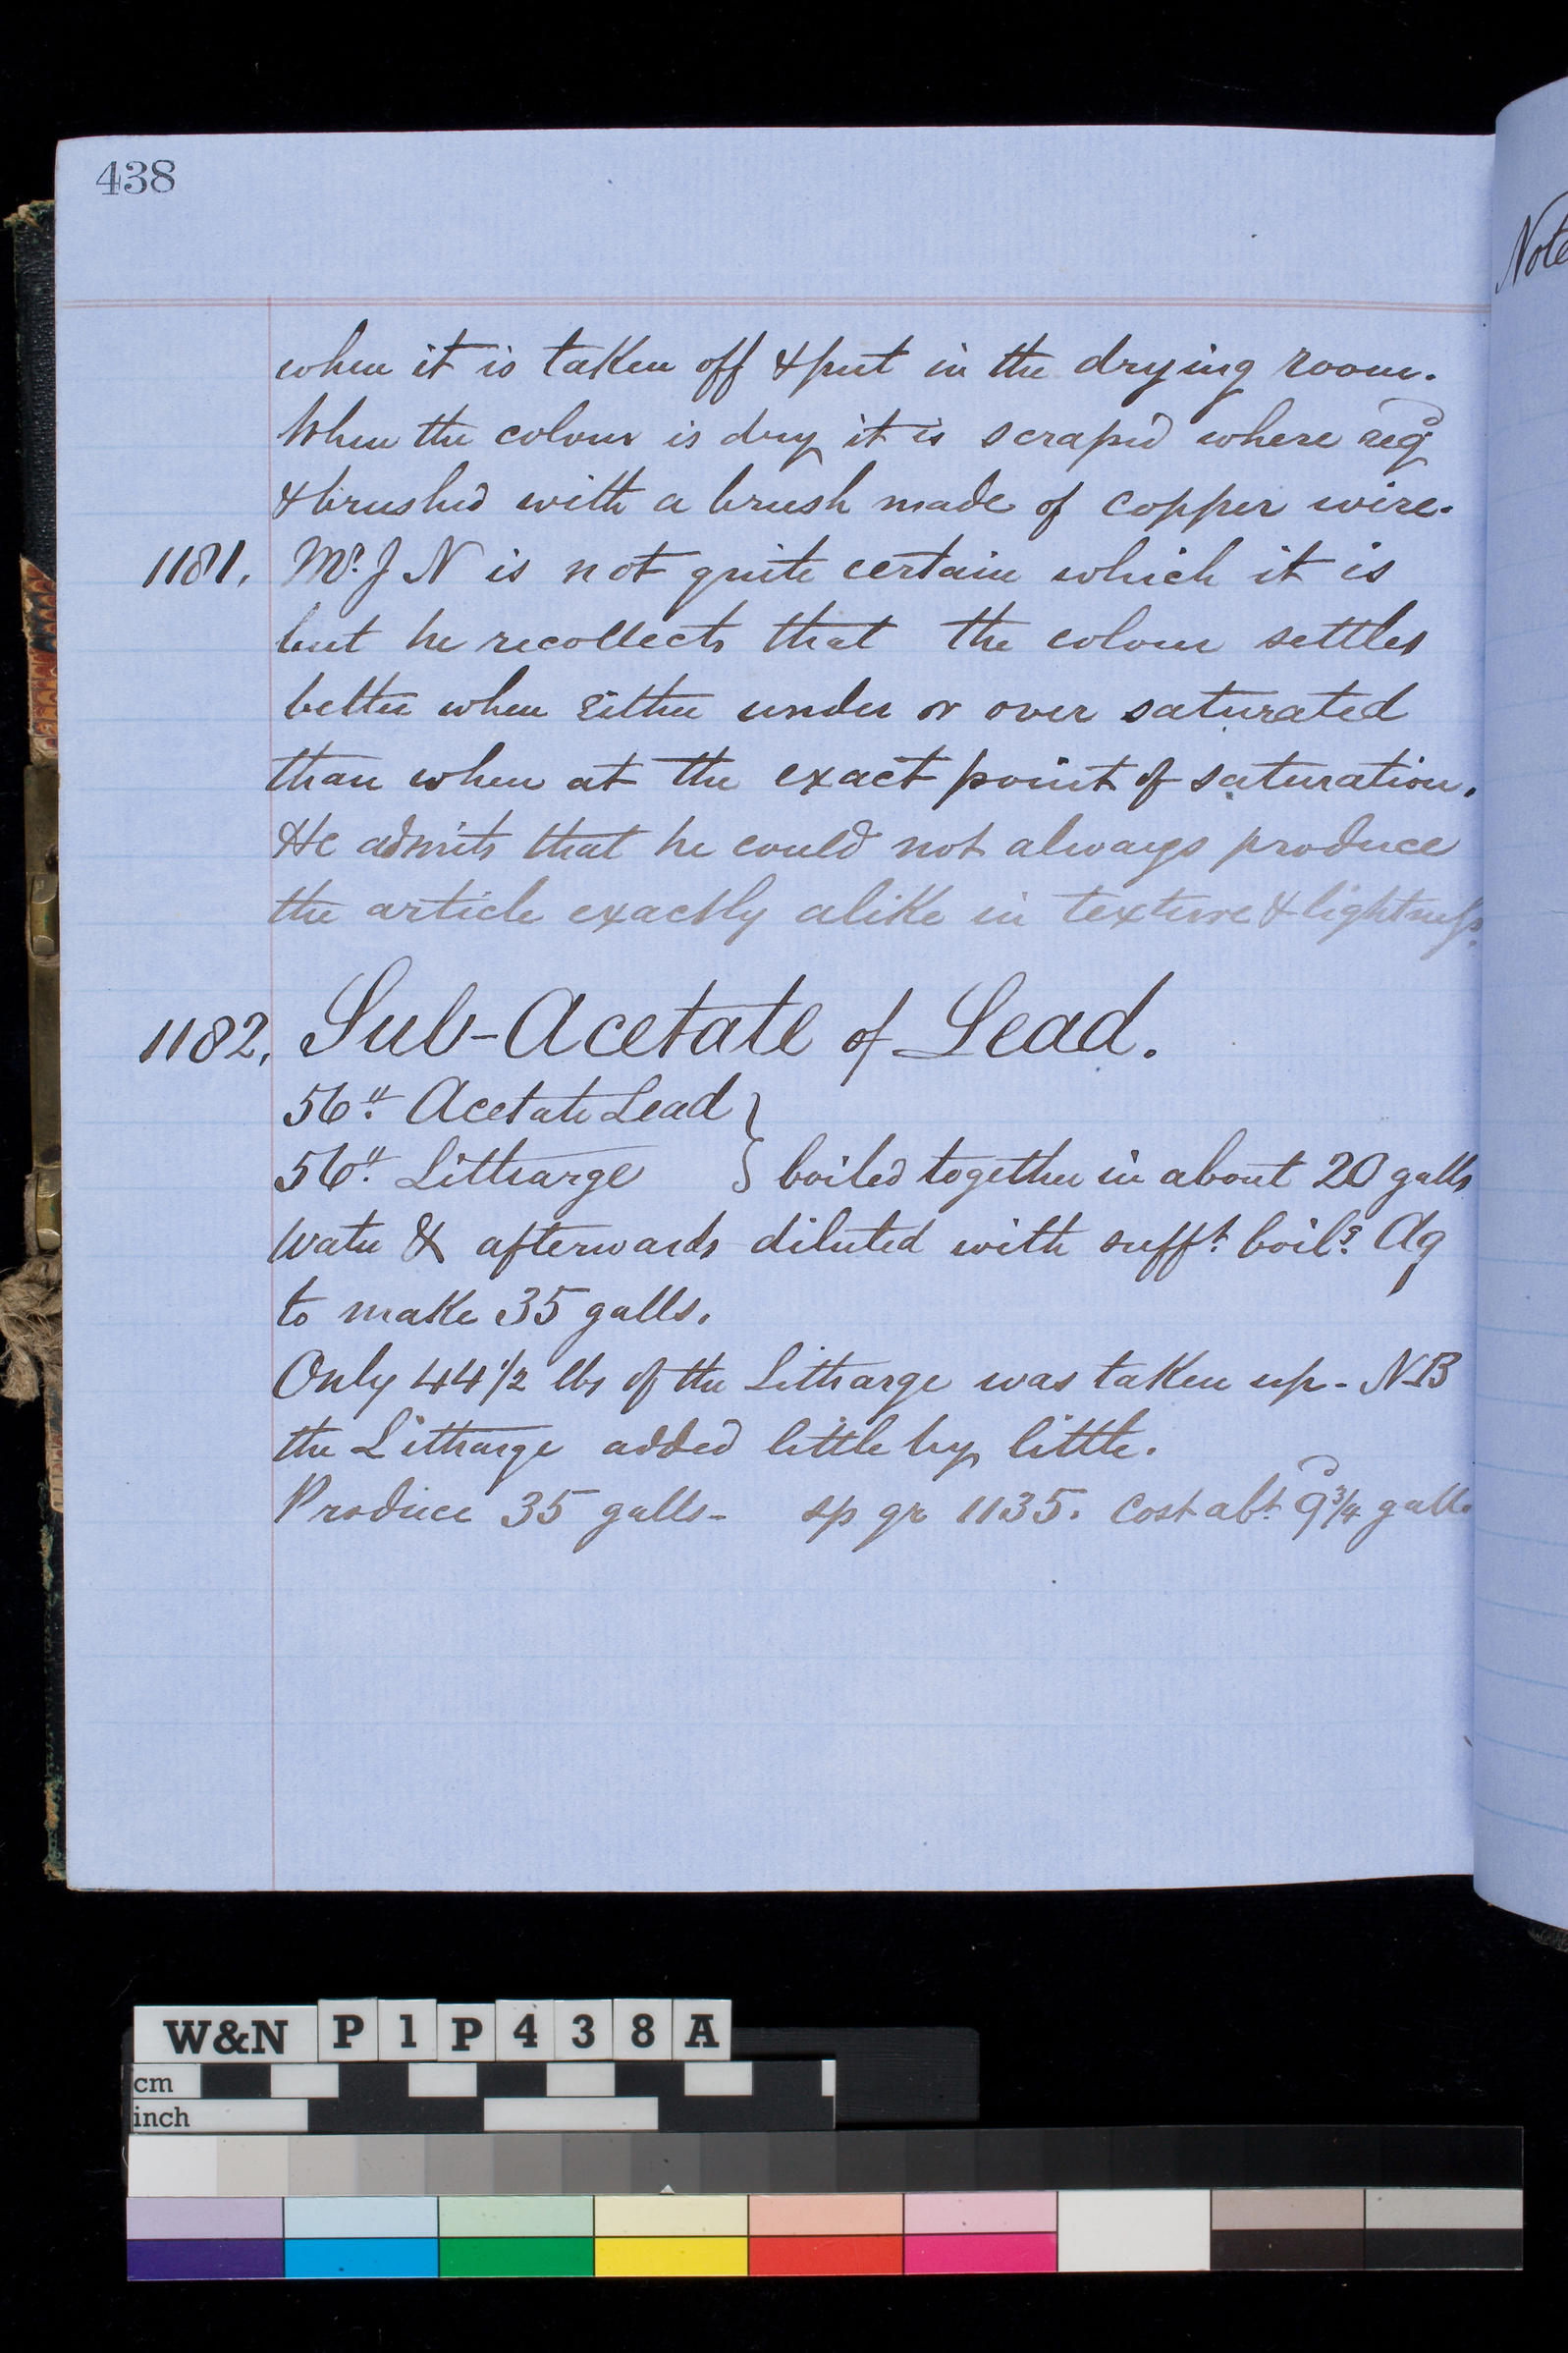 438
Note
when it is taken off & put in the drying room.
When the colour is dry it is scraped where reqd
& brushed with a brush made of copper wire.
1181. Mr. J N is not quite certain which it is
but he recollects that the colour settles
better when either under or over saturated
than when at the exact point of saturation.
He admits that he could not always produce
the article exactly alike in texture & lightness.
1182. Sub-Acetate of Lead.
56" Acetate Lead }
56" Litharge } boiled together in about 20 galls
Water & afterwards diluted with sufft. boilg. Aq
to make 35 galls.
Only 44 1/2 lbs of the Litharge was taken up - NB
the Litharge added little by little.
Produce 35 galls - sp gr 1135. Cost abt. 9 3/4 d gall.
W&N P1P438A
cm
inch